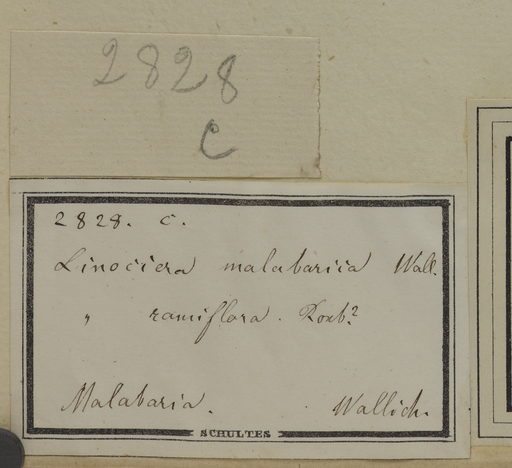 2828
C
2828. C.
Linociera malabariia Wall.
" ramiflora. Roxb?
Malabaria. Wallich.
SCHULTES